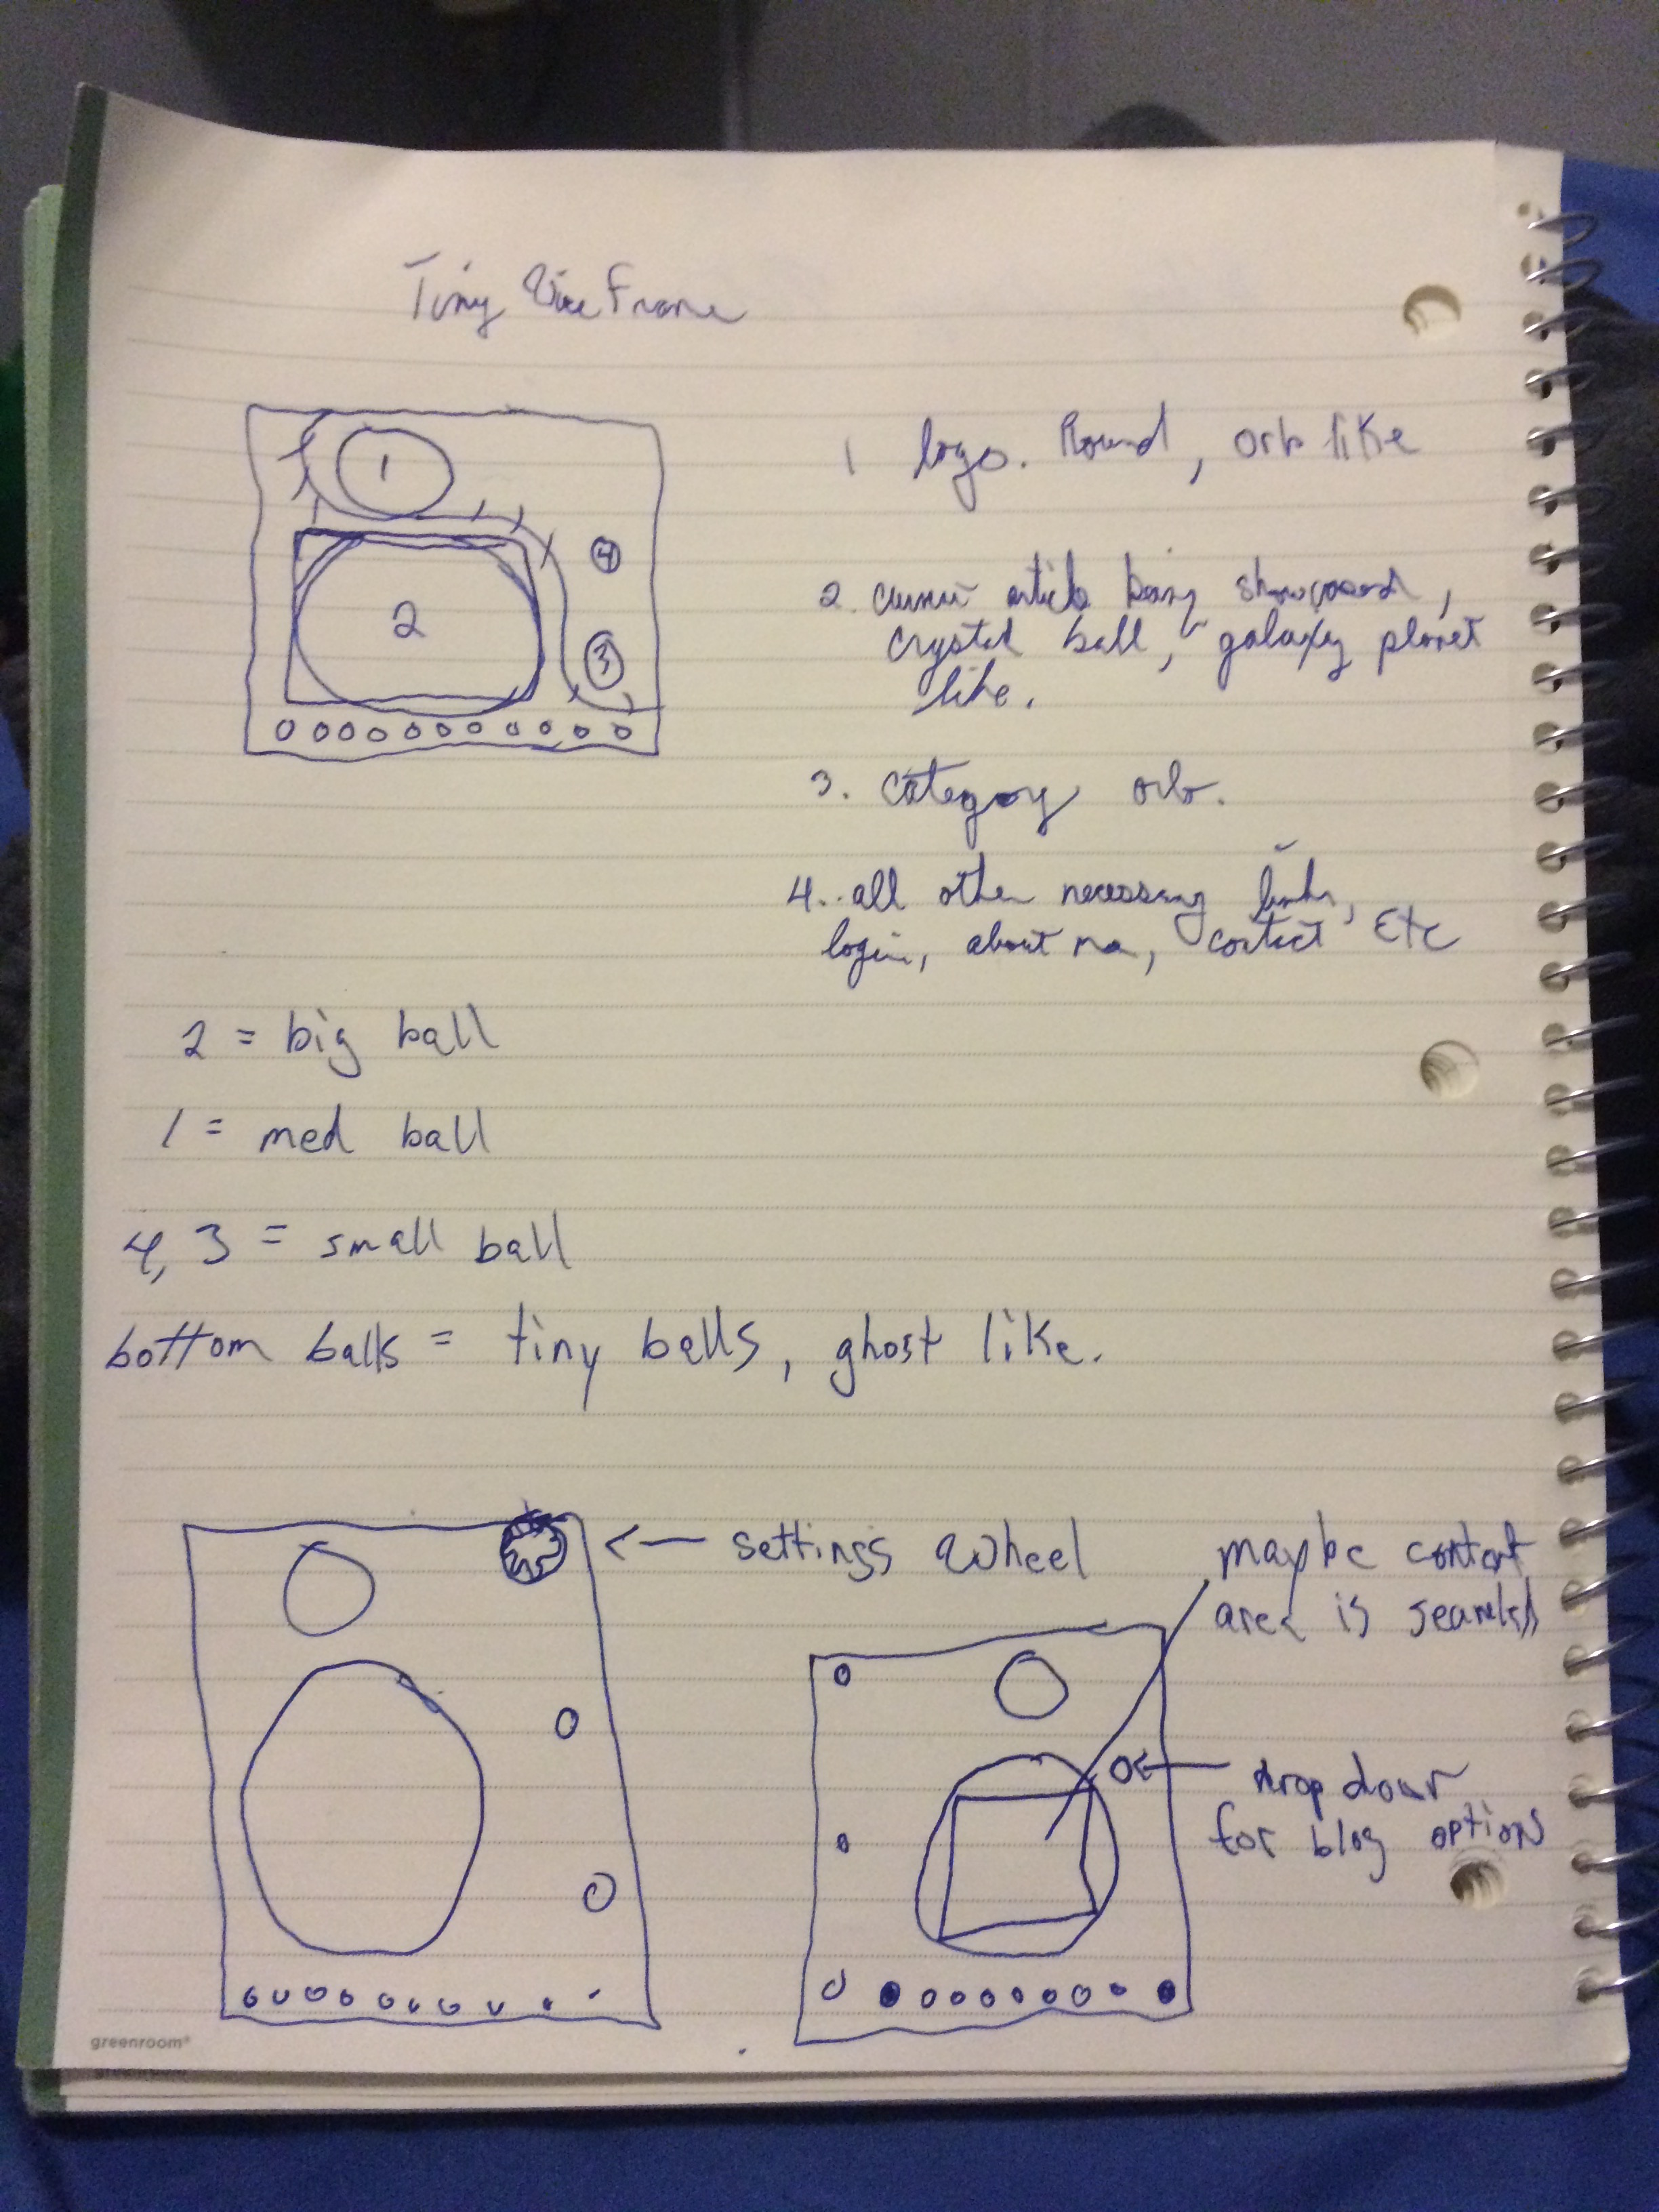 Tiny Wire Frame
1
2
4
3
1 logo. Round, orb like
2. current article being showcased,
crystal ball, galaxy planet
like.
3. category orb.
4. all other necessary links,
login, about me, contact, Etc
2 = big ball
1 = med ball
4, 3 = small ball
bottom balls = tiny balls, ghost like.
<— settings wheel
maybe content
area is seamless
drop down
for blog options
greenroom®